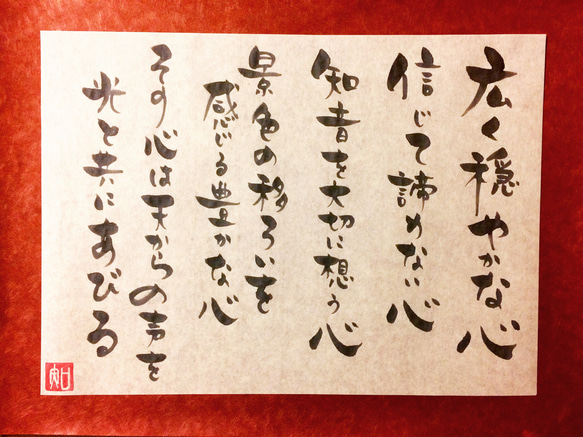 広く穏やかな心
信じて諦めない心
知音を大切に想う心
景色の移ろいを
感じる豊かな心
その心は天からの声を
光と共にあびる